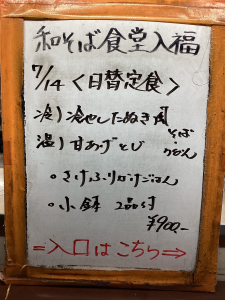 和そば食堂入福
7/14〈日替定食〉
冷) 冷やしたぬき
温) 甘あげとじ
そば・うどん
。さけふりかけごはん
。小鉢 2品付
¥900-
=入口はこちら⇒